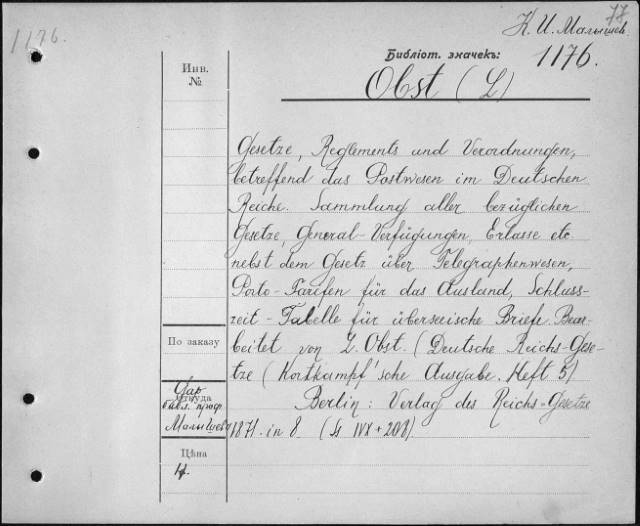 77
1176.
К. И. Малышев.
Инв.
№
Библіот. значекъ:
1176.
Obst (L)
Gesetze, Reglements und Verordnungen,
betreffend das Postwesen im Deutschen
Reiche. Sammlung aller bezüglichen
Gesetze, General-Verfügungen, Erlasse etc
nebst dem Gesetz über Telegraphenwesen,
Porto-Tarifen für das Ausland, Schluss-
zeit-Tabelle für überseeische Briefe. Bear-
beitet von L. Obst. (Deutsche Reichs-Gese-
tze (Kortkampf'sche Ausgabe. Heft 5)
Berlin: Verlag des Reichs-Gesetze
1871. in 8 (SS
По заказу
Дар
Откуда
библ. проф.
Малышева
Цѣна